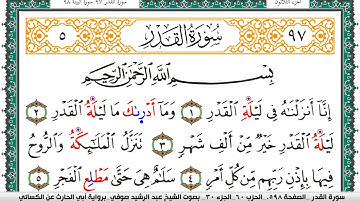 الجزء الثلاثون سورة القدر ٩٧ سورة البينة ٩٨
٩٧ سُورَةُ الْقَدْرِ ٥
بِسْمِ اللَّهِ الرَّحْمَٰنِ الرَّحِيمِ
إِنَّا أَنزَلْنَٰهُ فِي لَيْلَةِ الْقَدْرِ ١ وَمَا أَدْرِىٰكَ مَا لَيْلَةُ الْقَدْرِ ٢
لَيْلَةُ الْقَدْرِ خَيْرٌ مِّنْ أَلْفِ شَهْرٍ ٣ تَنَزَّلُ الْمَلَٰٓئِكَةُ وَالرُّوحُ
فِيهَا بِإِذْنِ رَبِّهِم مِّن كُلِّ أَمْرٍ ٤ سَلَٰمٌ هِيَ حَتَّىٰ مَطْلِعِ الْفَجْرِ ٥
سورة القدر _ الصفحة ٥٩٨. الحزب ٦٠ الجزء ٣٠. بصوت الشيخ عبد الرشيد صوفي _ برواية أبي الحارث عن الكسائي